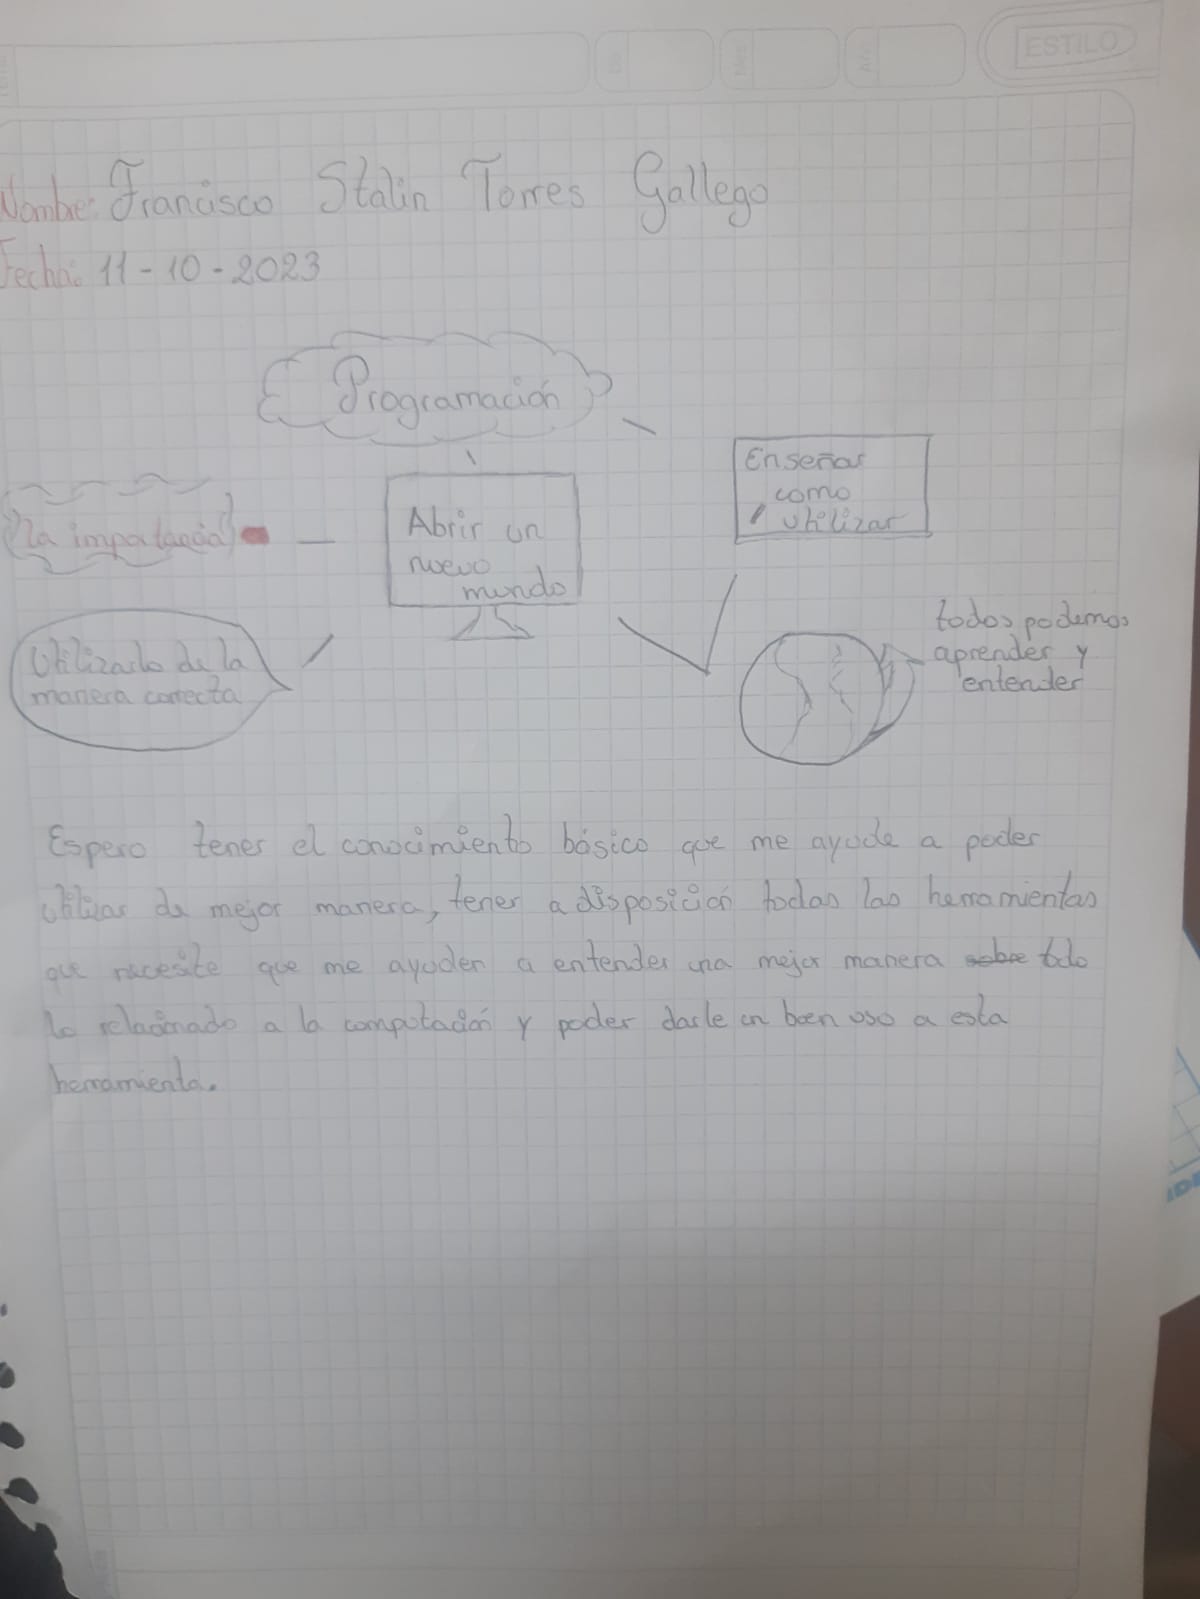 ESTILO
Nombre: Francisco Stalin Torres Gallego
Fecha: 11-10-2023
Programación
Enseñar
como
utilizar
La importancia
Abrir un
nuevo
mundo
Utilizarlo de la
manera correcta
todos podemos
aprender y
entender
Espero tener el conocimiento básico que me ayude a poder
utilizar de mejor manera, tener a disposición todas las herramientas
que necesite que me ayuden a entender una mejor manera sobre todo
lo relacionado a la computación y poder darle un buen uso a esta
herramienta.